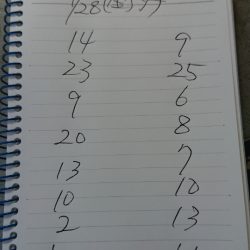 14 9
23 25
9 6
20 8
13 7
10 10
2 13